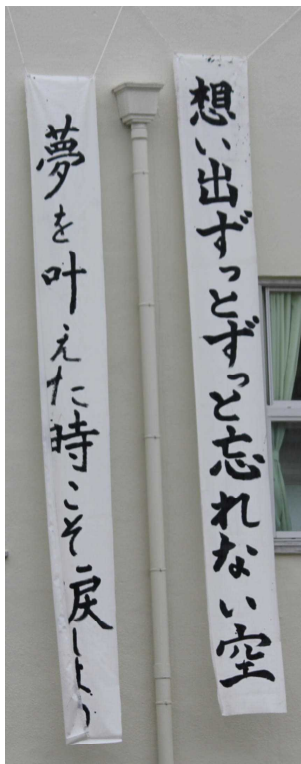 想い出ずっとずっと忘れない空
夢を叶えた時こそ戻しよう